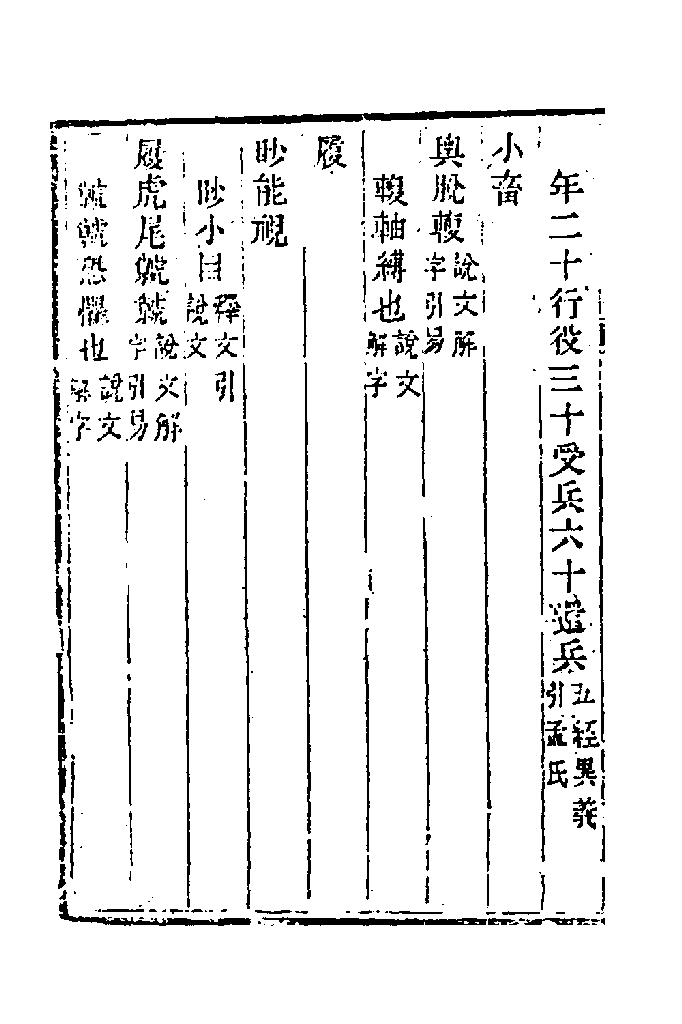 年二十行役三十受兵六十還兵五經異義引孟氏
小畜
輿脫輹說文解字引易
輹軸縛也說文解字
履
眇能視
眇小目釋文引說文
履虎尾虩虩說文解字引易
虩虩恐懼也說文解字